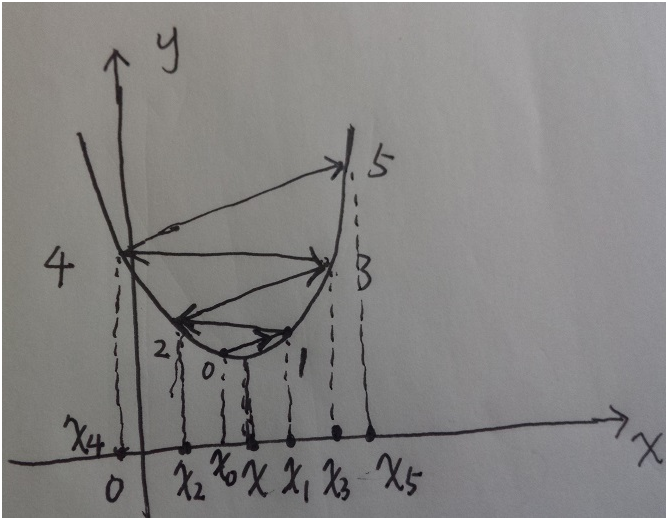 y
5
4 3
2 0 1
x4 x2 x0 x x1 x3 x5 x
0